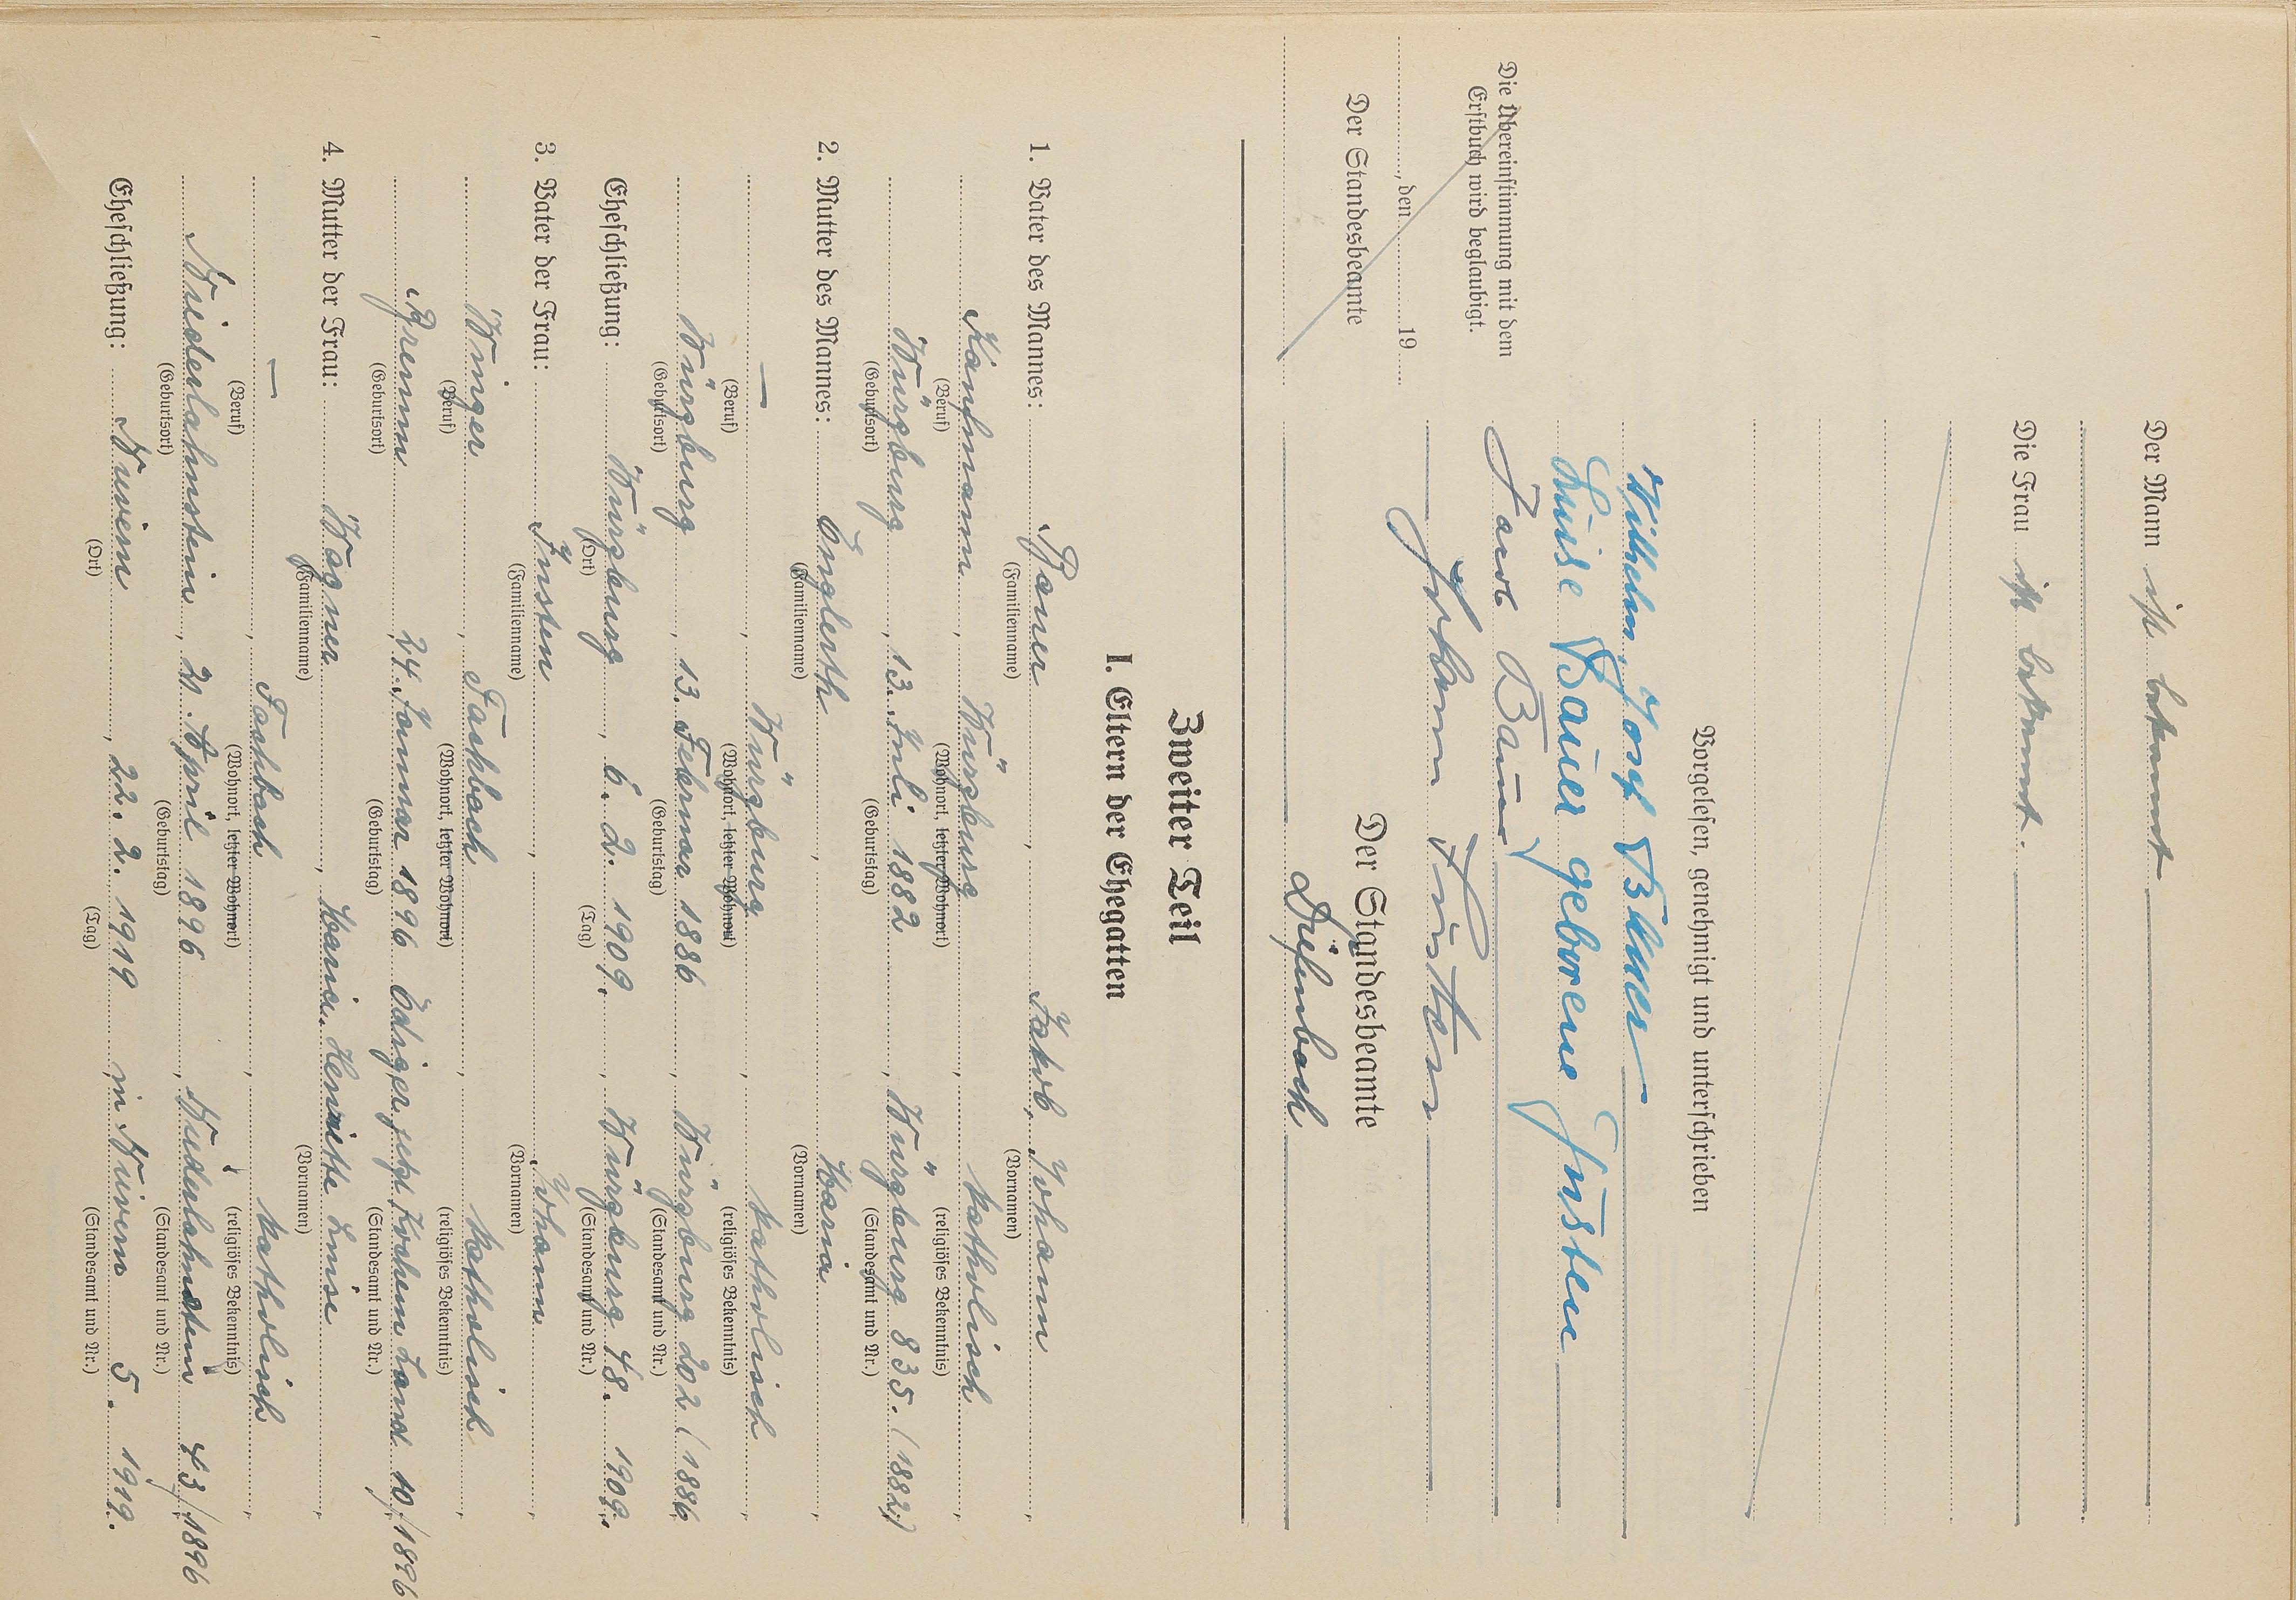 Der Mann ist bekannt
Die Frau ist bekannt.
Vorgelesen, genehmigt und unterschrieben
Wilhelm, Josef Bauer
Luise Bauer geborene Justen
Bauer
Johann Justen
Der Standesbeamte
Diefenbach
Die Übereinstimmung mit dem
Erstbuch wird beglaubigt.
, den 19
Der Standesbeamte
Zweiter Teil
I. Eltern der Ehegatten
1. Vater des Mannes: Bauer, Jakob, Johann,
(Familienname) (Vornamen)
Kaufmann, Würzburg, katholisch,
(Beruf) (Wohnort, letzter Wohnort) (religiöses Bekenntnis)
Würzburg, 13. Juli 1882, Würzburg 835. (1882)
(Geburtsort) (Geburtstag) (Standesamt und Nr.)
2. Mutter des Mannes: Englerth, Maria,
(Familienname) (Vornamen)
—, Würzburg, katholisch,
(Beruf) (Wohnort, letzter Wohnort) (religiöses Bekenntnis)
Würzburg, 13. Februar 1886, Würzburg 202 (1886
(Geburtsort) (Geburtstag) (Standesamt und Nr.)
Eheschließung: Würzburg, 6. 2. 1909., Würzburg 48. 1909.
(Ort) (Tag) (Standesamt und Nr.)
3. Vater der Frau: Justen, Johann,
(Familienname) (Vornamen)
Winzer, Fachbach, katholisch,
(Beruf) (Wohnort, letzter Wohnort) (religiöses Bekenntnis)
Bremm, 24. Januar 1896 Ediger jetzt Kochem Land 10/1896
(Geburtsort) (Geburtstag) (Standesamt und Nr.)
4. Mutter der Frau: Wagner, Maria, Henriette Luise,
(Familienname) (Vornamen)
—, Fachbach, katholisch,
(Beruf) (Wohnort, letzter Wohnort) (religiöses Bekenntnis)
Niederlahnstein, 21. April 1896, Niederlahnstein 43/1896
(Geburtsort) (Geburtstag) (Standesamt und Nr.)
Eheschließung: Nievern, 22. 2. 1919, in Nievern 5. 1919.
(Ort) (Tag) (Standesamt und Nr.)